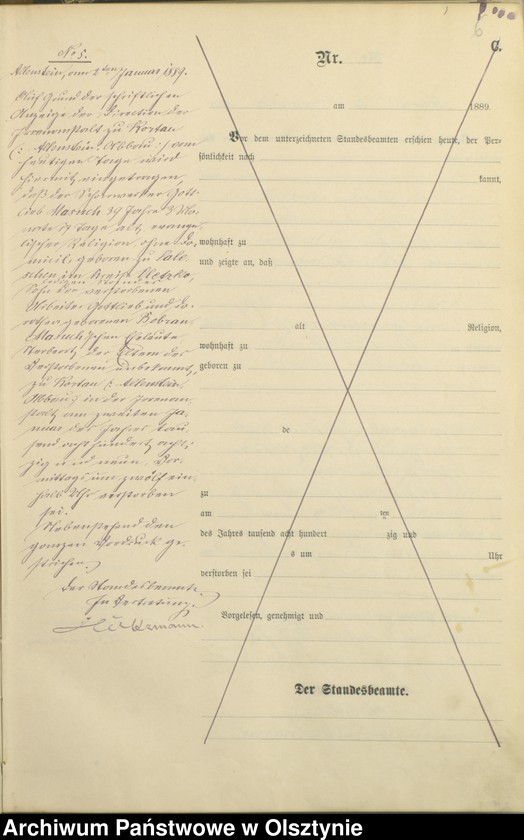 C.
No 5.
Allenstein, am 2ten Januar 1889.
Auf Grund der schriftlichen
Anzeige der Direction der
Irrenanstalt zu Kortau
(: Allenstein Abbau :) vom
heutigen Tage wird
hiermit eingetragen,
daß der Scharwerker Gott-
lieb Masuch 39 Jahre 3 Mo-
nate 17 Tage alt, evange-
lischer Religion, ohne Do-
micil, geboren zu
im Kreise
Sohn der verstorbenen
Arbeiter Gottlieb und Do-
rothea geborenen Bobran-
Masuch'schen Eheleute
der Eltern des
Verstorbenen unbekannt,
zu Kortau (: Allenstein
Abbau :) in der Irrenan-
stalt am zweiten Ja-
nuar des Jahres tau-
send acht hundert acht-
zig und neun, Vor-
mittags um zwölf ein
halb Uhr verstorben
sei.
Nebenstehend den
ganzen Vordruck ge-
strichen.
Der Standesbeamte.
In Vertretung.
Nr.
am 1889.
Vor dem unterzeichneten Standesbeamten erschien heute, der Per-
sönlichkeit nach
kannt,
wohnhaft zu
und zeigte an, daß
alt Religion,
wohnhaft zu
geboren zu
de
zu
am ten
des Jahres tausend acht hundert zig und
s um Uhr
verstorben sei
Vorgelesen, genehmigt und
Der Standesbeamte.
Archiwum Państwowe w Olsztynie